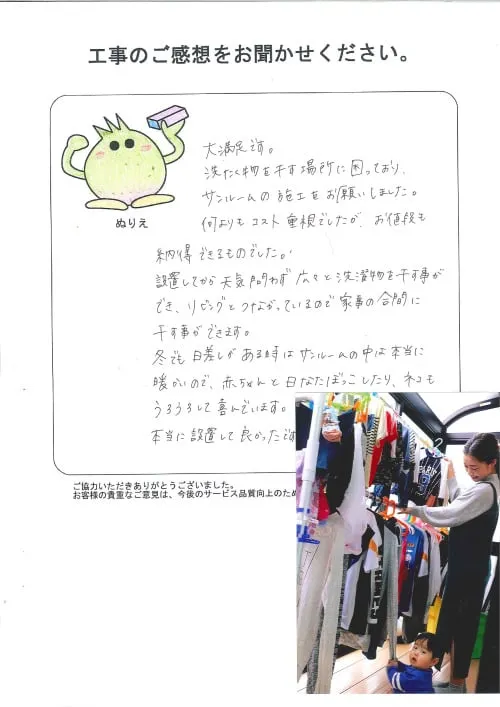 工事のご感想をお聞かせください。
大満足です。
洗たく物を干す場所に困っており、
サンルームの施工をお願いしました。
何よりもコスト重視でしたが、お値段も
ぬりえ
納得できるものでした。
設置してから天気問わず広々と洗濯物を干す事が
でき、リビングとつながっているので家事の合間に
干す事ができます。
冬でも日差しがある時はサンルームの中は本当に
暖かいので、赤ちゃんと日なたぼっこしたり、ネコも
うろうろして喜んでいます。
本当に設置して良かったです
ご協力いただきありがとうございました。
お客様の貴重なご意見は、今後のサービス品質向上のため